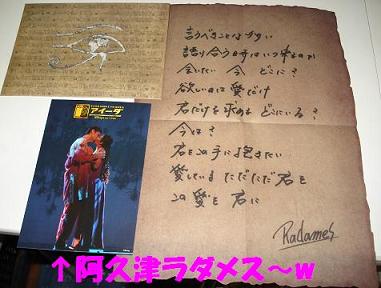 言うべきことなどない
語り合う日はいつ来るのか
会いたい 今 どこに?
欲しいのは愛だけ
君だけを求める どこにいる?
今は?
君をこの手に抱きたい
愛している ただただ君を
この愛を 君に
Radames
アイーダ
↑阿久津ラダメス～w